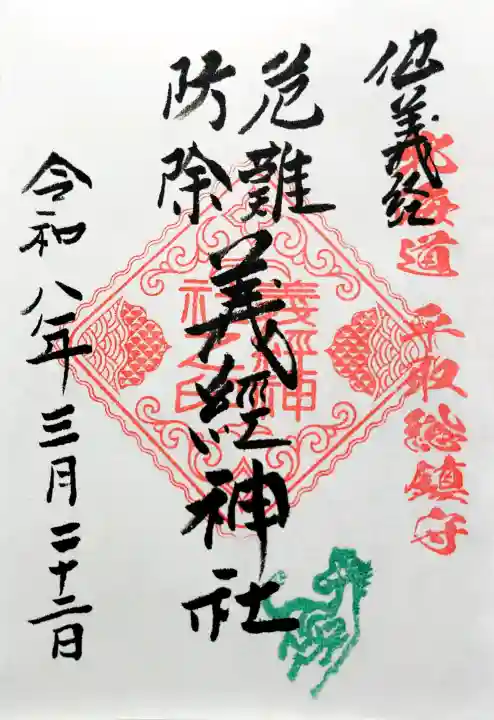 義経
北海道 平取総鎮守
厄難
防除
義經神社
義經神
社之印
令和八年三月二十二日